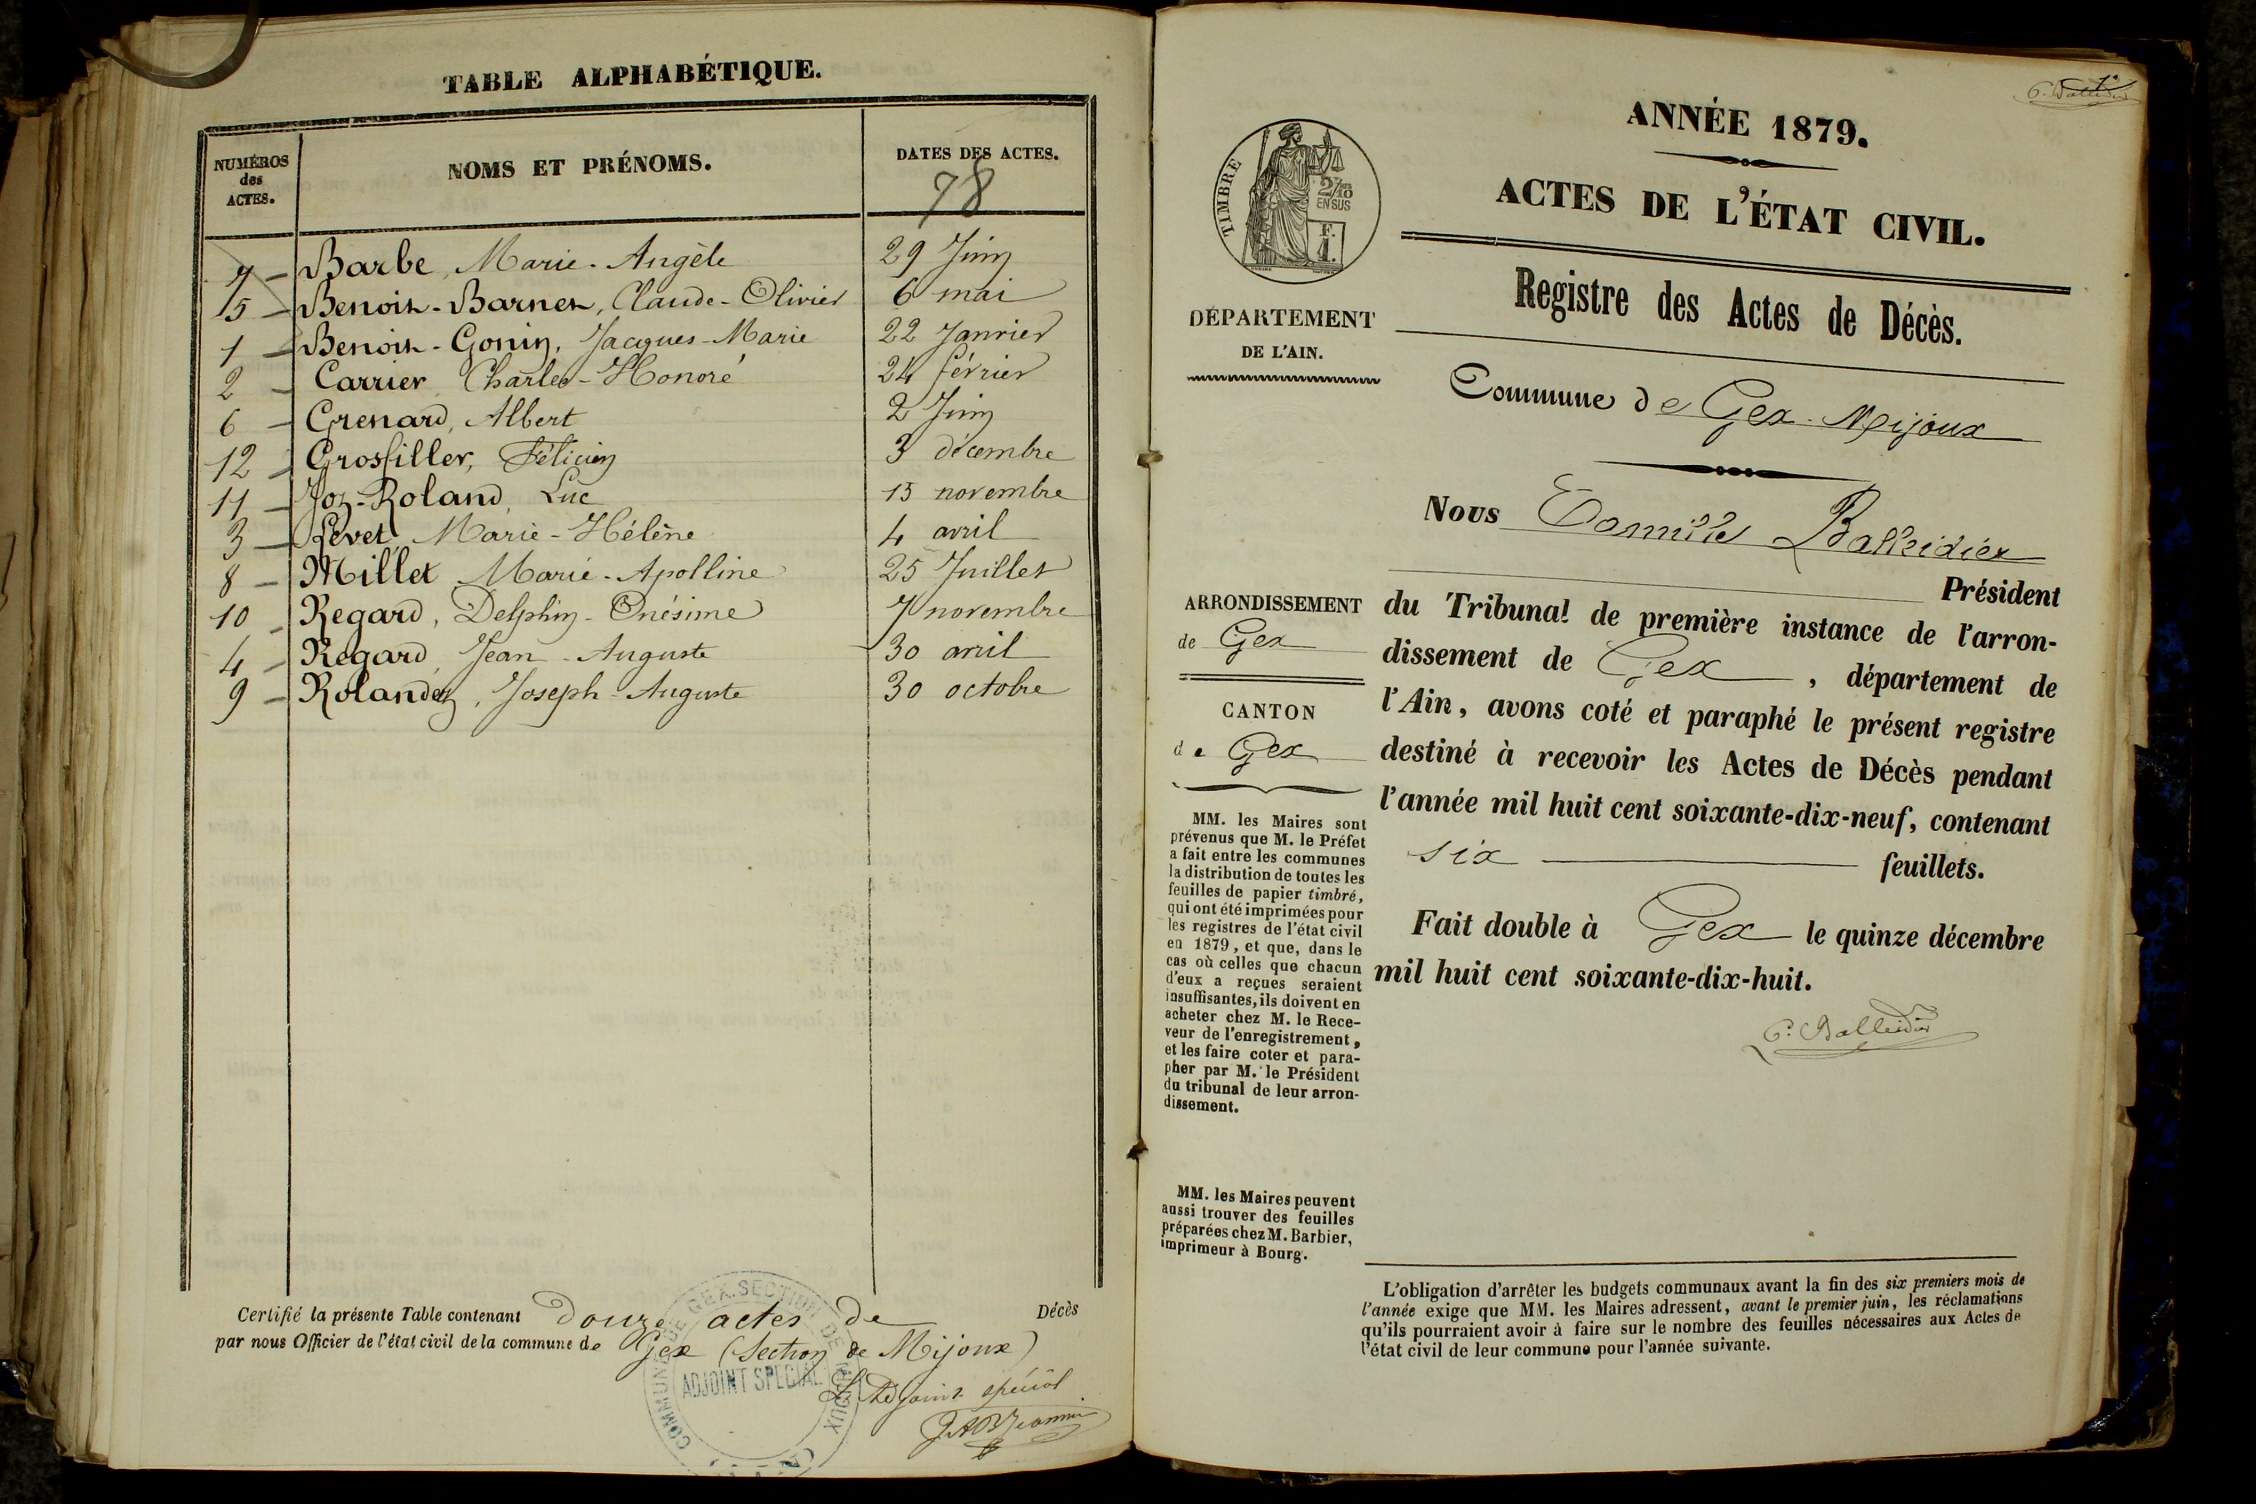 TABLE ALPHABÉTIQUE.
NUMÉROS
des
ACTES.
NOMS ET PRÉNOMS.
DATES DES ACTES.
78
7 - Barbe, Marie-Angèle 29 Juin
5 - Benoit-Barnet, Claude-Olivier 6 mai
1 - Benoit-Gonin, Jacques-Marie 22 Janvier
2 - Carrier Charles-Honoré 24 février
6 - Grenard, Albert 2 Juin
12 - Grosfiller, Félicien 3 décembre
11 - Joz-Roland, Luc 15 novembre
3 - Levet Marie-Hélène 4 avril
8 - Millet Marie-Apolline 25 Juillet
10 - Regard, Delphin-Onésime 7 novembre
4 - Regard, Jean-Auguste 30 avril
9 - Rolandez, Joseph-Auguste 30 octobre
Certifié la présente Table contenant Douze actes de Décès
par nous Officier de l'état civil de la commune de Gex (Section de Mijoux)
COMMUNE DE GEX. SECTION DE MIJOUX
ADJOINT SPECIAL
L'Adjoint spécial
ANNÉE 1879.
ACTES DE L'ÉTAT CIVIL.
TIMBRE
2/10
EN SUS
F.
1.
Registre des Actes de Décès.
DÉPARTEMENT
DE L'AIN.
Commune de Gex-Mijoux
Nous Camille Balleidier
Président
du Tribunal de première instance de l'arron-
dissement de Gex, département de
l'Ain, avons coté et paraphé le présent registre
destiné à recevoir les Actes de Décès pendant
l'année mil huit cent soixante-dix-neuf, contenant
six feuillets.
Fait double à Gex le quinze décembre
mil huit cent soixante-dix-huit.
C. Balleidier
ARRONDISSEMENT
de Gex
CANTON
de Gex
MM. les Maires sont
prévenus que M. le Préfet
a fait entre les communes
la distribution de toutes les
feuilles de papier timbré,
qui ont été imprimées pour
les registres de l'état civil
en 1879, et que, dans le
cas où celles que chacun
d'eux a reçues seraient
insuffisantes, ils doivent en
acheter chez M. le Rece-
veur de l'enregistrement,
et les faire coter et para-
pher par M. le Président
du tribunal de leur arron-
dissement.
MM. les Maires peuvent
aussi trouver des feuilles
préparées chez M. Barbier,
imprimeur à Bourg.
L'obligation d'arrêter les budgets communaux avant la fin des six premiers mois de
l'année exige que MM. les Maires adressent, avant le premier juin, les réclamations
qu'ils pourraient avoir à faire sur le nombre des feuilles nécessaires aux Actes de
l'état civil de leur commune pour l'année suivante.